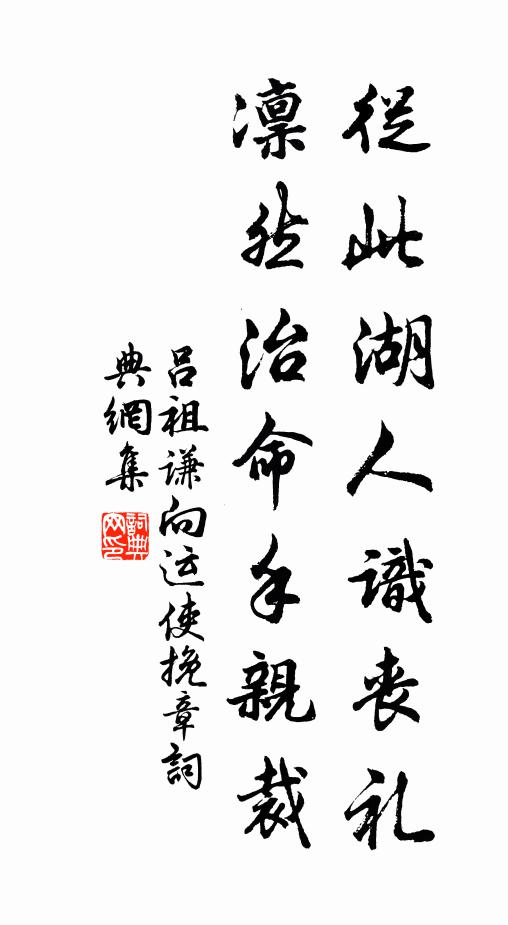 從此湖人識喪礼
凛然治命手親裁
呂祖谦向运使挽章詞
典網集
詞典
网印